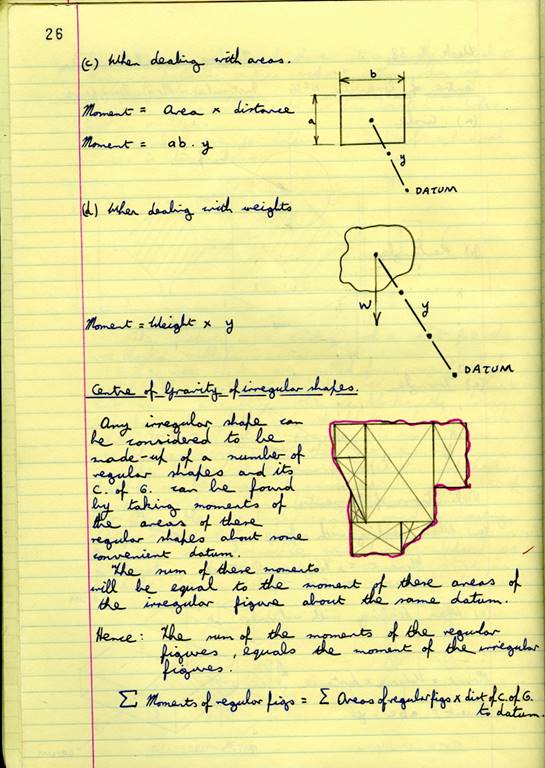 26
(c) When dealing with areas.
Moment = Area × distance
Moment = ab. y
b
a
y
DATUM
(d) When dealing with weights
W
y
Moment = Weight × y
DATUM
Centre of Gravity of irregular shapes.
Any irregular shape can
be considered to be
made-up of a number of
regular shapes and its
C. of G. can be found
by taking moments of
the areas of these
regular shapes about some
convenient datum.
The sum of these moments
will be equal to the moment of these areas of
the irregular figure about the same datum.
Hence: The sum of the moments of the regular
figures, equals the moment of the irregular
figures.
∑ Moments of regular figs = ∑ Areas of regular figs × dist of C. of G.
to datum.